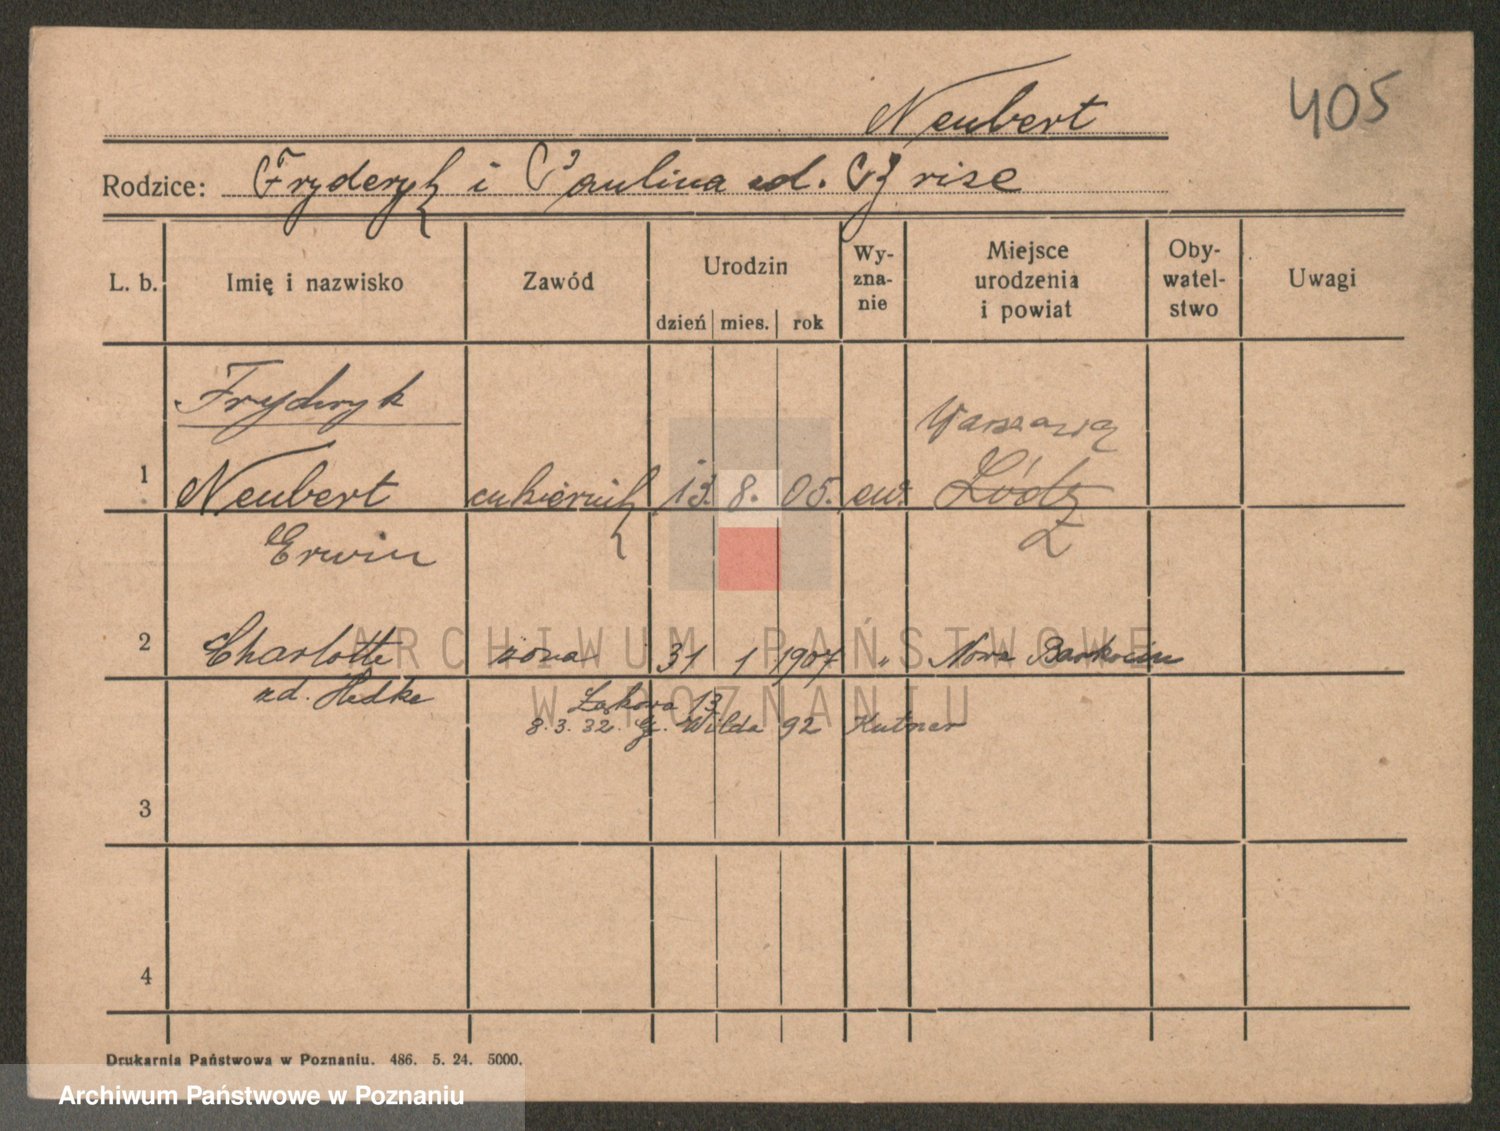 405
Neubert
Rodzice: Fryderyk i Paulina zd. Grise
L. b. Imię i nazwisko Zawód Urodzin dzień mies. rok Wy-zna-nie Miejsce urodzenia i powiat Oby-watel-stwo Uwagi
Fryderyk
Warszawa
1 Neubert cukiernik 13. 8. 05. ew. Łódź
Erwin
2 Charlotte żona 31 1 1907 " Nowa
zd. Hedke
Łąkowa 13
8.3.32. G. Wilda 92 Kutner
3
4
Drukarnia Państwowa w Poznaniu. 486. 5. 24. 5000.
ARCHIWUM PAŃSTWOWE
W POZNANIU
Archiwum Państwowe w Poznaniu